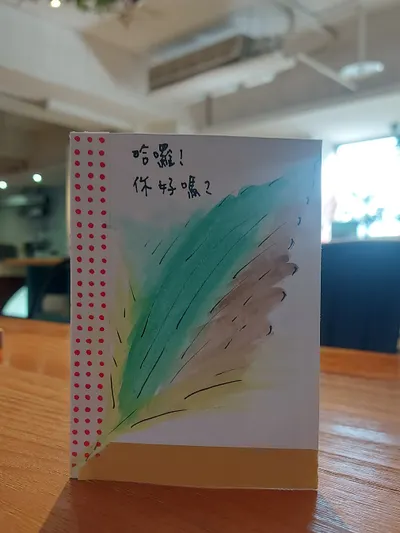 哈囉!
你好嗎?